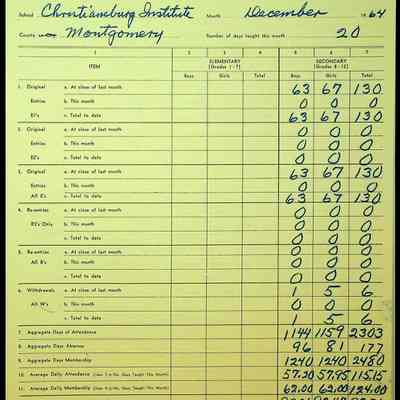 School Christiansburg Institute Month December 1964
County Montgomery Number of days taught this month 20
1 2 3 4 5 6 7
ITEM ELEMENTARY (Grades 1-7) SECONDARY (Grades 8-12)
Boys Girls Total Boys Girls Total
1. Original a. At close of last month 63 67 130
Entries b. This month 0 0 0
E1's c. Total to date 63 67 130
2. Original a. At close of last month 0 0 0
Entries b. This month 0 0 0
E2's c. Total to date 0 0 0
3. Original a. At close of last month 63 67 130
Entries b. This month 0 0 0
All E's c. Total to date 63 67 130
4. Re-entries a. At close of last month 0 0 0
R2's Only b. This month 0 0 0
c. Total to date 0 0 0
5. Re-entries a. At close of last month 0 0 0
All R's b. This month 0 0 0
c. Total to date 0 0 0
6. Withdrawals a. At close of last month 1 5 6
All W's b. This month 0 0 0
c. Total to date 1 5 6
7. Aggregate Days of Attendance 1144 1159 2303
8. Aggregate Days Absence 96 81 177
9. Aggregate Days Membership 1240 1240 2480
10. Average Daily Attendance Days Taught This Month) 57.20 57.95 115.15
11. Average Daily Membership Days Taught This Month) 62.00 62.00 124.00